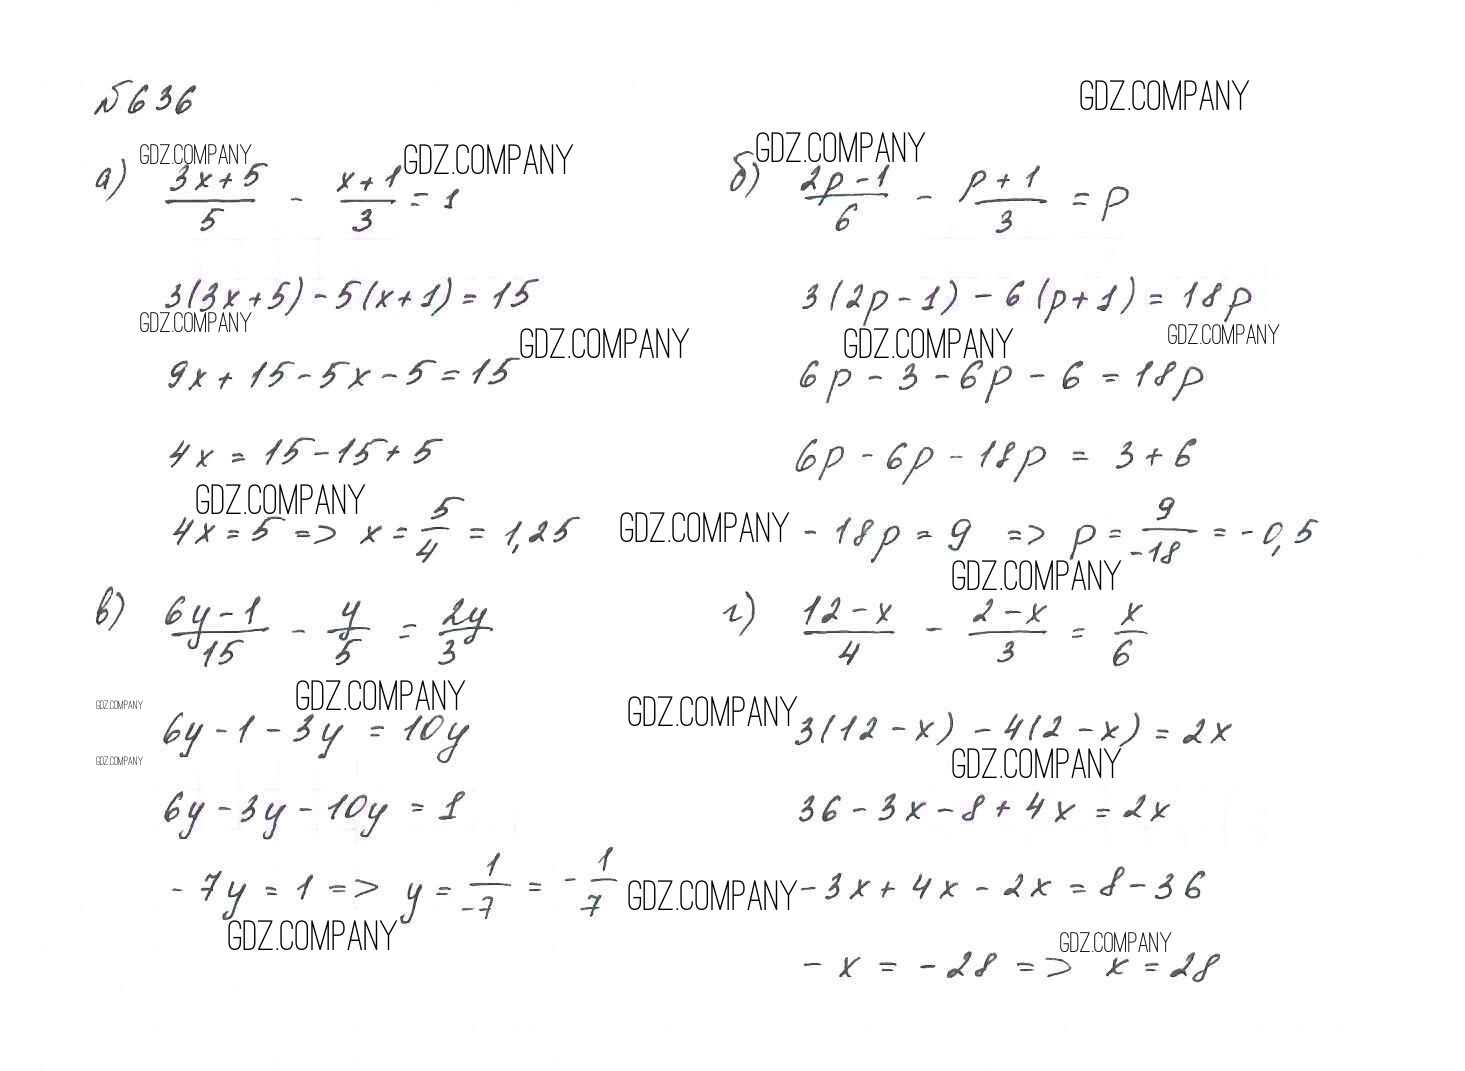 №636
GDZ.COMPANY
GDZ.COMPANY
GDZ.COMPANY
GDZ.COMPANY
а) (3x+5)/5 - (x+1)/3 = 1
б) (2p-1)/6 - (p+1)/3 = p
3(3x+5)-5(x+1)=15
3(2p-1)-6(p+1)=18p
GDZ.COMPANY
GDZ.COMPANY
GDZ.COMPANY
GDZ.COMPANY
9x+15-5x-5=15
6p-3-6p-6=18p
4x=15-15+5
6p-6p-18p=3+6
GDZ.COMPANY
GDZ.COMPANY
4x=5 => x=5/4=1,25
-18p=9 => p=9/-18=-0,5
GDZ.COMPANY
в) (6y-1)/15 - y/5 = 2y/3
г) (12-x)/4 - (2-x)/3 = x/6
GDZ.COMPANY
GDZ.COMPANY
GDZ.COMPANY
6y-1-3y=10y
3(12-x)-4(2-x)=2x
GDZ.COMPANY
GDZ.COMPANY
6y-3y-10y=1
36-3x-8+4x=2x
-7y=1 => y=1/-7=-1/7
GDZ.COMPANY
-3x+4x-2x=8-36
GDZ.COMPANY
GDZ.COMPANY
-x=-28 => x=28